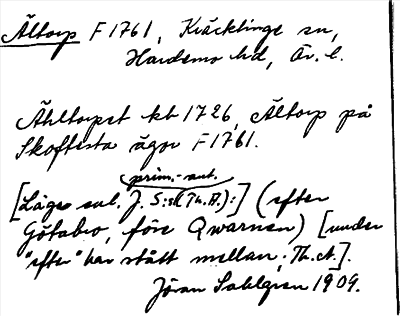 Ältorp F 1761, Kräcklinge sn,
Hardemo hd, Ör. l.
Ähltorpet kb 1726, Ältorp på
Skoftesta ägor F 1761.
prim.-ant.
[Läge enl. J. S:s (Th. A.):] (efter
Götabro, före Qwarnen) [under
"efter" har stått mellan; Th. A.].
Jöran Sahlgren 1909.